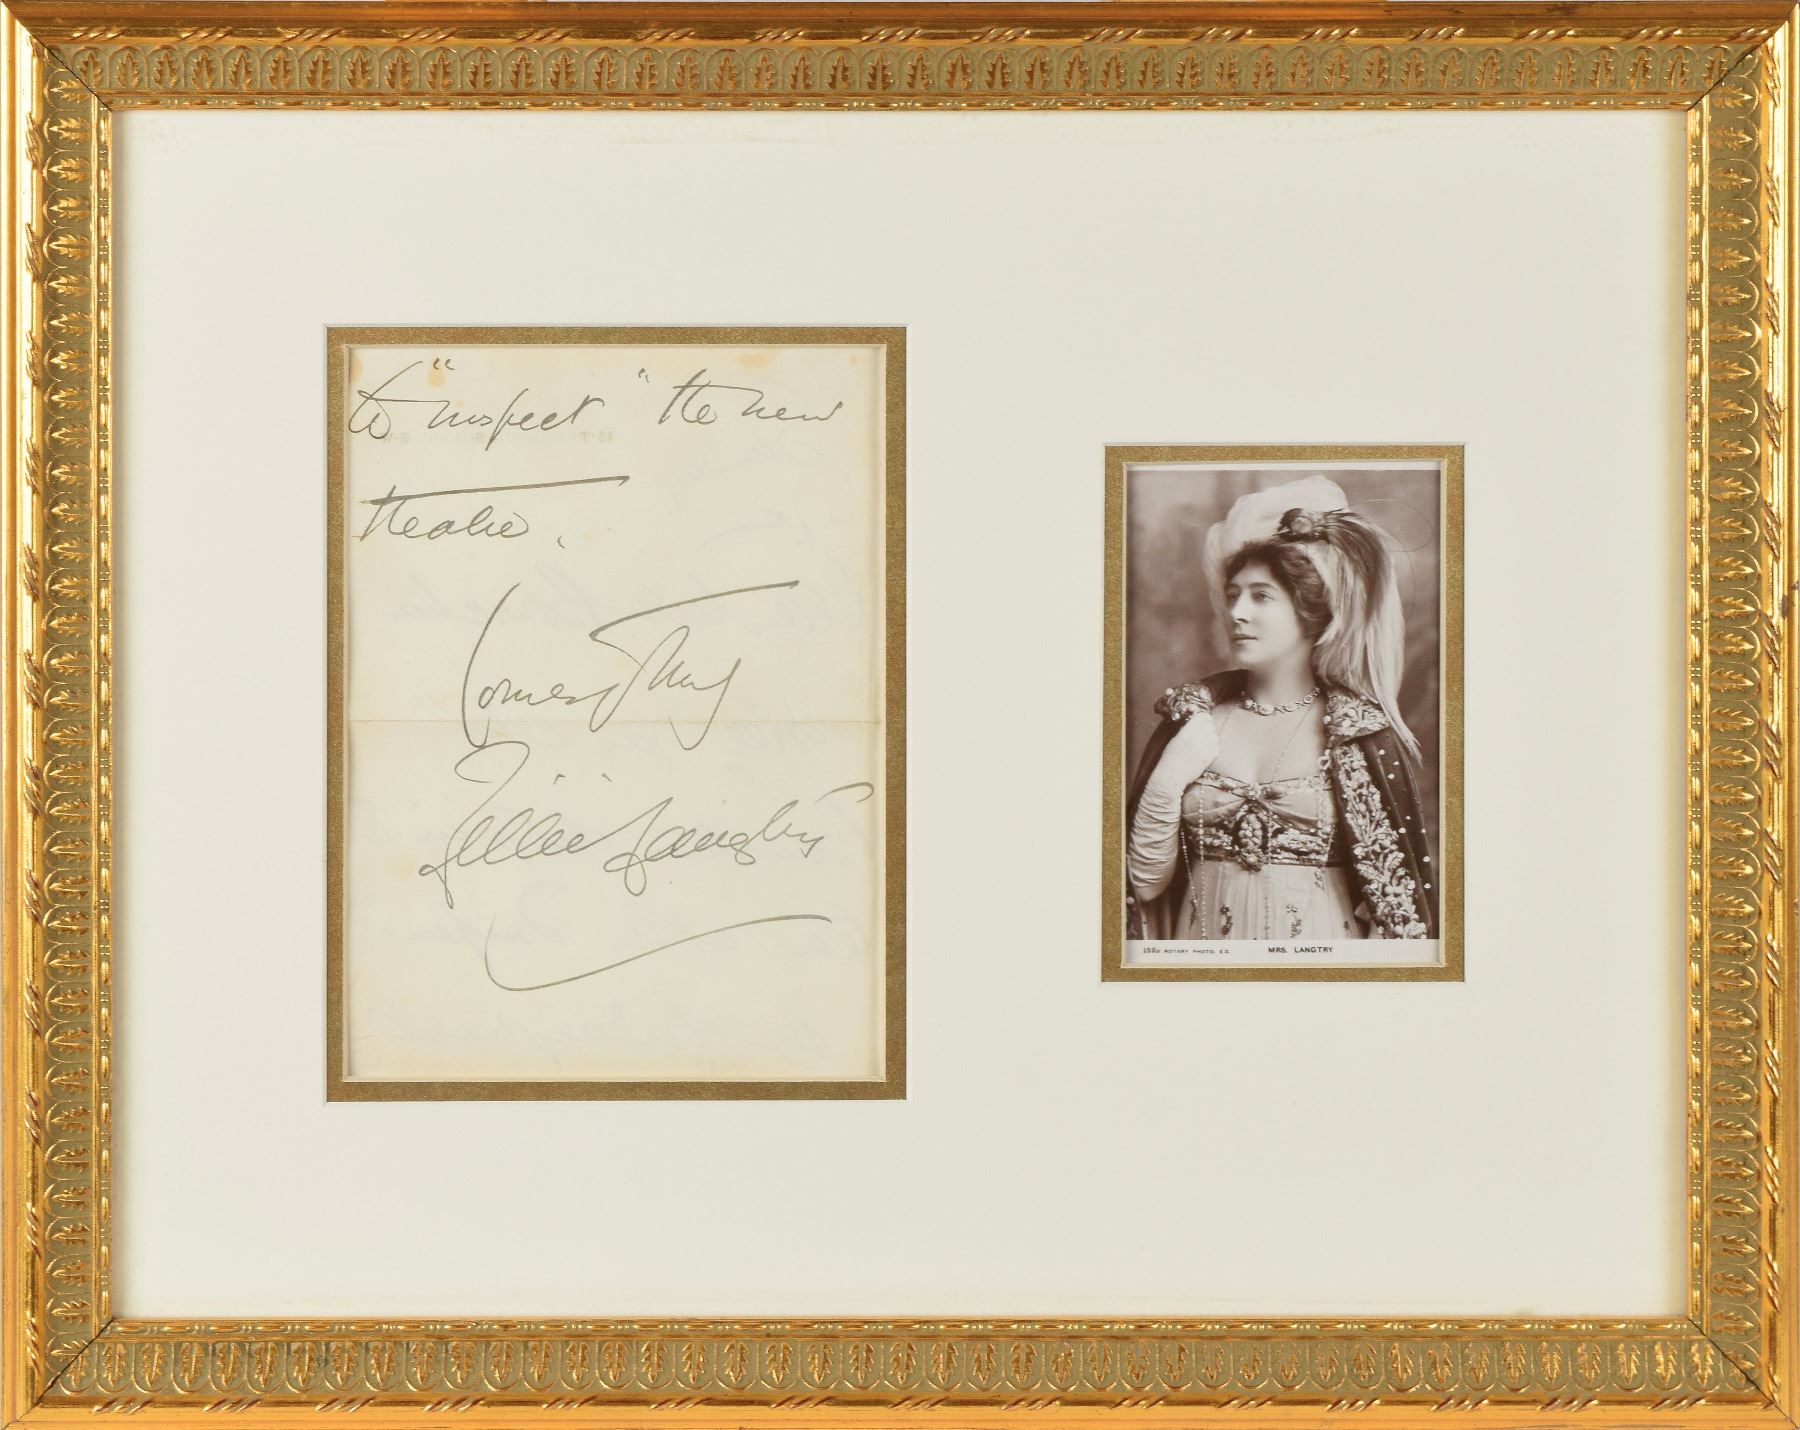 to "inspect" the new
theatre.
Yours Truly
Lillie Langtry
152D ROTARY PHOTO, E.C. MRS. LANGTRY